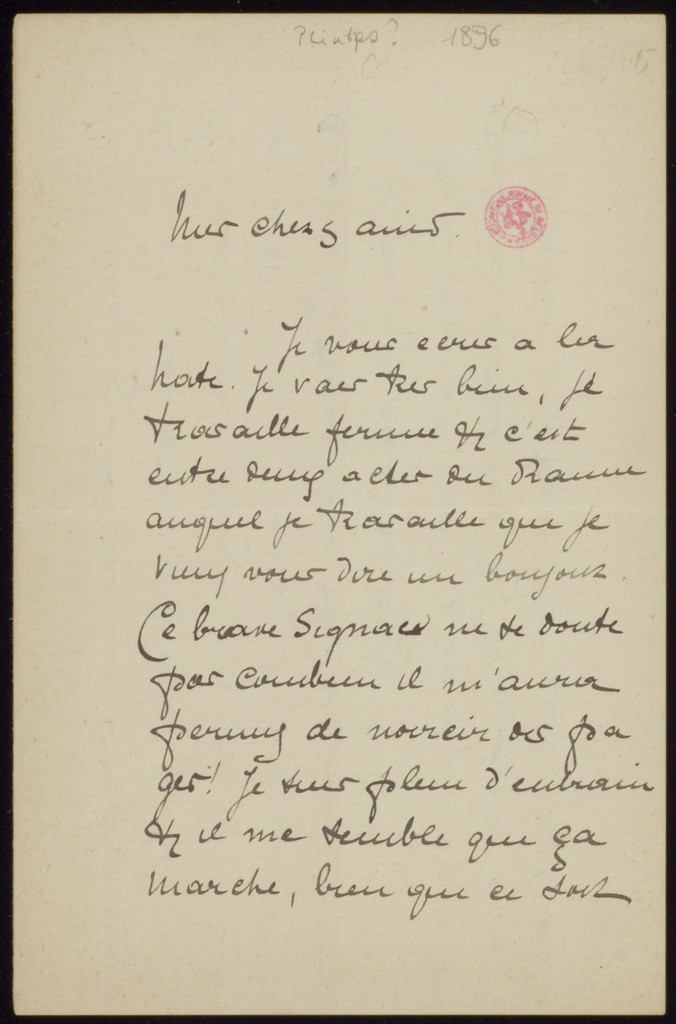 Printps? 1896
Mes chers amis.
Je vous ecris a la
hate. Je vais tres bien, je
travaille ferme & c'est
entre deux actes du Drame
auquel je travaille que je
viens vous dire un bonjour.
Ce brave Signac ne se doute
pas combien il m'aura
permis de noircir des pa
ges! Je suis plein d'entrain
& il me semble que ça
marche, bien que ce soit